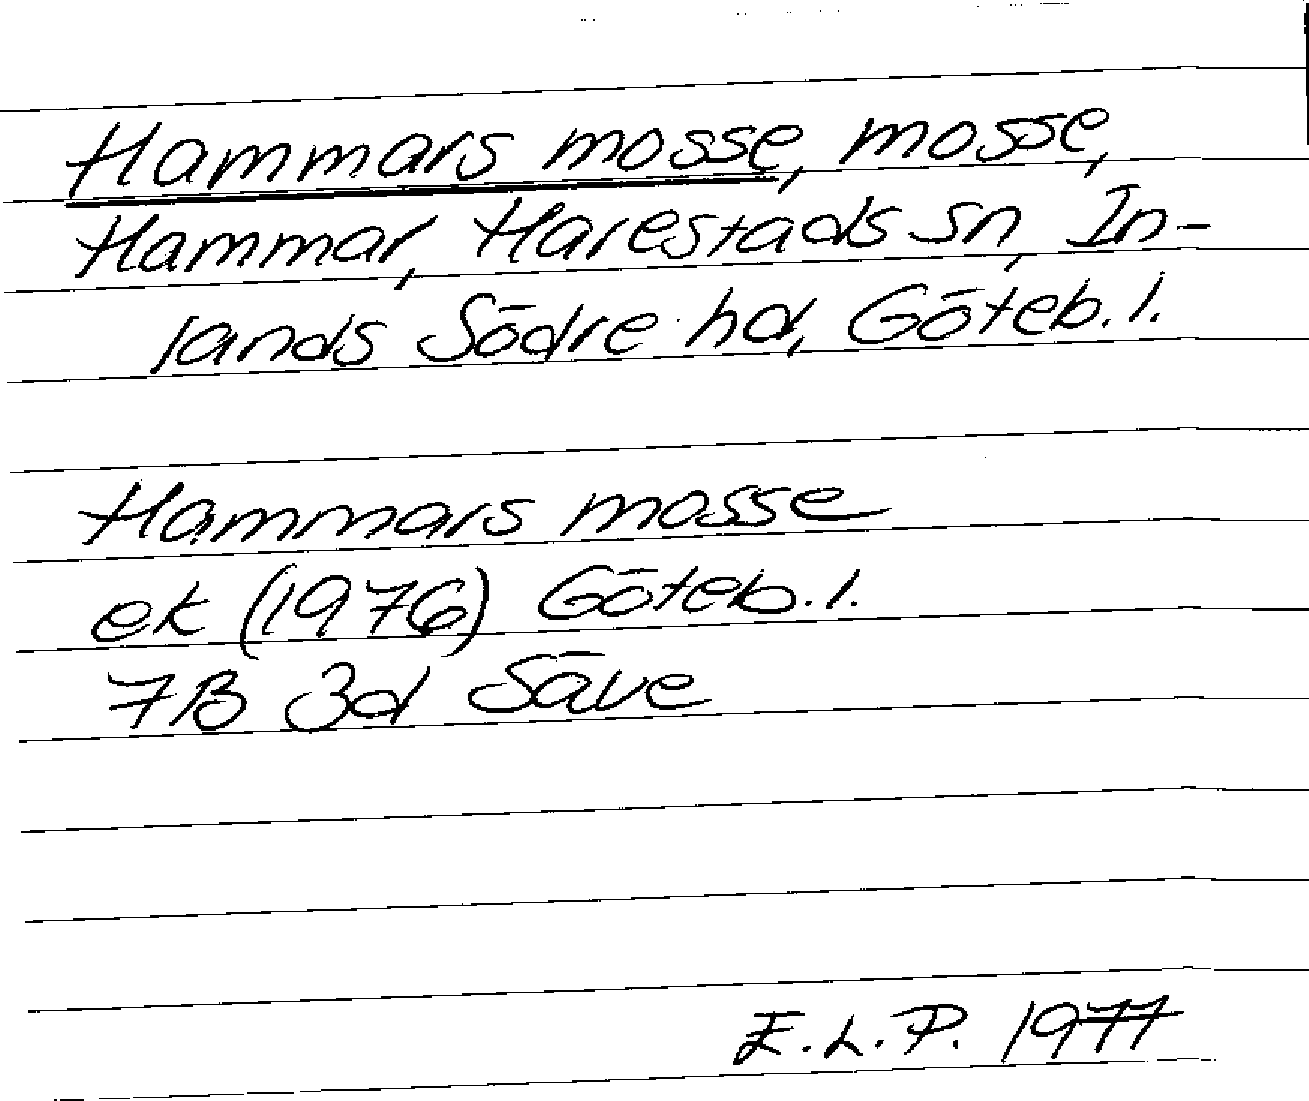 Hammars mosse, mosse,
Hammar, Harestads sn, In-
lands Södre hd, Göteb. l.
Hammars mosse
ek (1976) Göteb. l.
7B 3d Säve
E. L. P. 1977